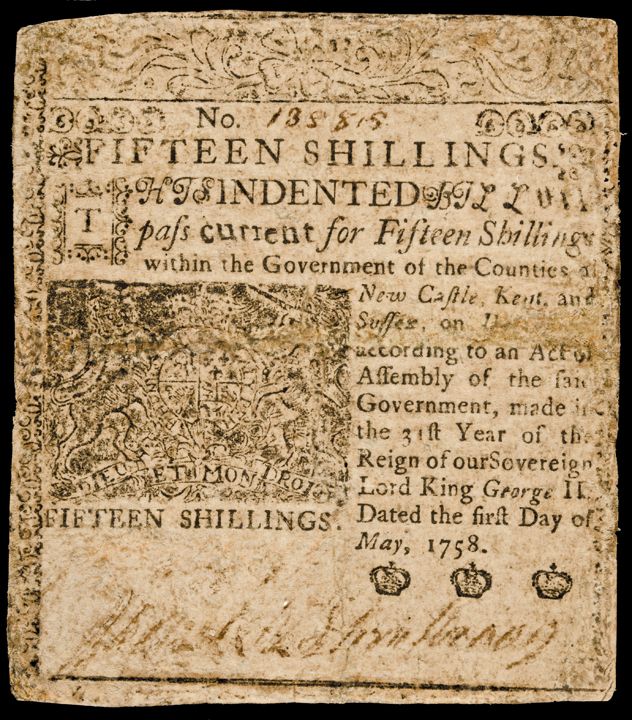 No. 13885
FIFTEEN SHILLINGS.
THIS INDENTED BILL
paſs current for Fifteen Shillings
within the Government of the Counties of
New Caſtle, Kent, and
Suſſex, on
according to an Act of
Aſſembly of the ſaid
Government, made in
the 31ſt Year of the
Reign of ourSovereign
Lord King George II.
Dated the firſt Day of
May, 1758.
DIEU ET MON DROIT
FIFTEEN SHILLINGS.